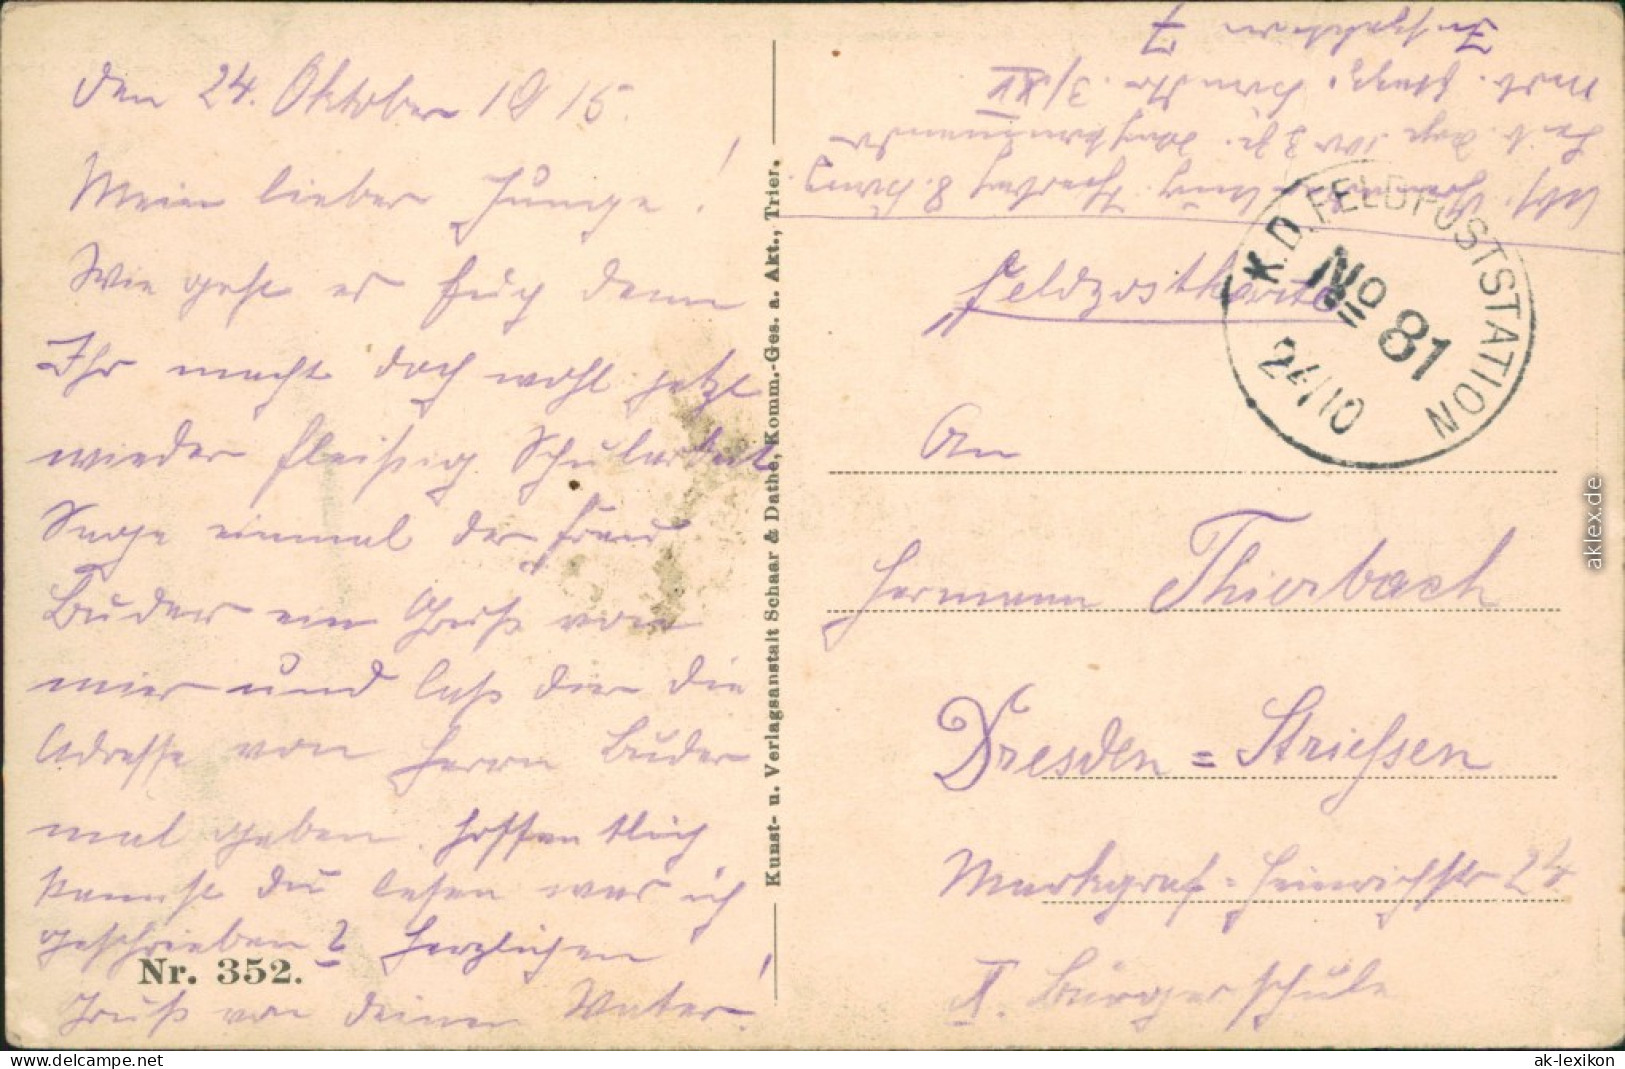 den 24. Oktober 1915.
Mein lieber Junge!
Wie geht es Euch denn
Ihr macht doch wohl jetzt
wieder fleißig Schularbeit
Sage einmal der Frau
Buder ein Gruß von
mir und laß dir die
Adresse von Herrn Buder
mal geben. Hoffentlich
kannst du lesen was ich
geschrieben? Herzlichen
Gruß von deinem Vater!
Nr. 352.
Kunst- u. Verlagsanstalt Schaar & Dathe, Komm.-Ges. a. Akt., Trier.
Abs.
7
Feldpostkarte
K.D. FELDPOSTSTATION
No 81
24/10
An
Hermann Thierbach
Dresden=Strießen
Markgraf=Heinrichstr 24
X. Bürgerschule
aklex.de
ak-lexikon